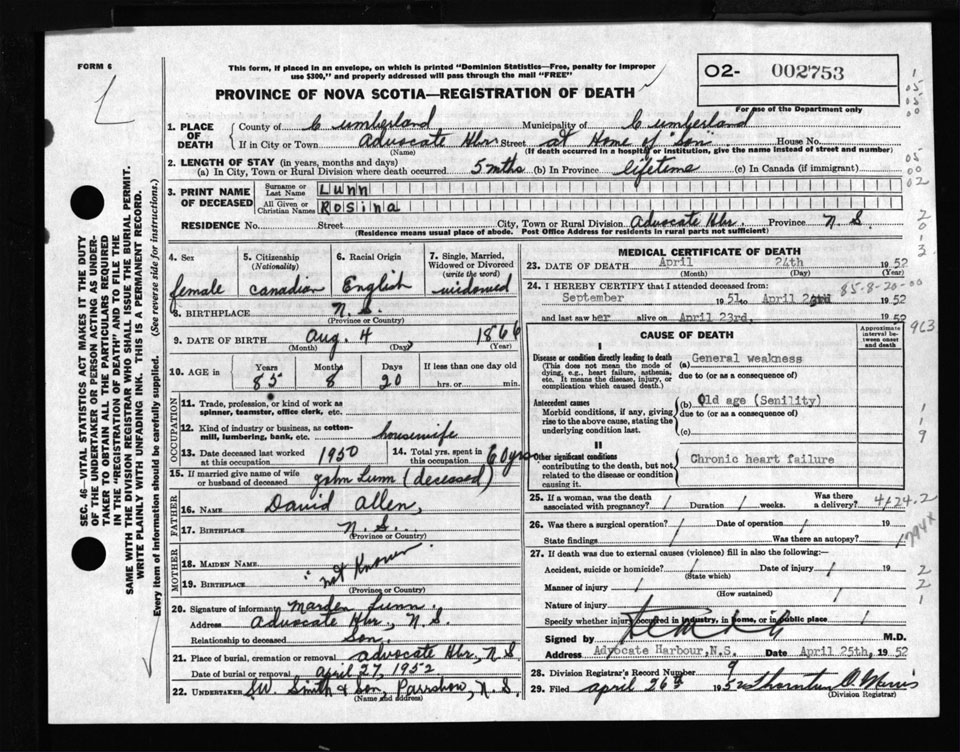 FORM 6
This form, if placed in an envelope, on which is printed "Dominion Statistics—Free, penalty for improper
use $300," and properly addressed will pass through the mail "FREE"
PROVINCE OF NOVA SCOTIA—REGISTRATION OF DEATH
O2- 002753
For use of the Department only
1. PLACE OF DEATH
County of Cumberland Municipality of Cumberland
If in City or Town Advocate Hbr Street at Home of "Son" House No.
(Name) (If death occurred in a hospital or institution, give the name instead of street and number)
2. LENGTH OF STAY (in years, months and days)
(a) In City, Town or Rural Division where death occurred 5 mths (b) In Province lifetime (c) In Canada (if immigrant)
3. PRINT NAME OF DECEASED
Surname or Last Name Lunn
All Given or Christian Names Rosina
RESIDENCE No. Street City, Town or Rural Division Advocate Hbr. Province N.S.
(Residence means usual place of abode. Post Office Address for residents in rural parts not sufficient)
4. Sex female
5. Citizenship (Nationality) Canadian
6. Racial Origin English
7. Single, Married, Widowed or Divorced (write the word) widowed
8. BIRTHPLACE N.S.
(Province or Country)
9. DATE OF BIRTH Aug. 4 1866
(Month) (Day) (Year)
10. AGE in Years 85 Months 8 Days 20 If less than one day old
hrs. or min.
OCCUPATION
11. Trade, profession, or kind of work as
spinner, teamster, office clerk, etc.
12. Kind of industry or business, as cotton-
mill, lumbering, bank, etc. housewife
13. Date deceased last worked at this occupation 1950
14. Total yrs. spent in this occupation 60 yrs
15. If married give name of wife
or husband of deceased John Lunn (deceased)
FATHER
16. NAME David Allen,
17. BIRTHPLACE N.S.
(Province or Country)
MOTHER
18. MAIDEN NAME not Known.
19. BIRTHPLACE "
(Province or Country)
20. Signature of informant Marden Lunn.
Address Advocate Hbr., N.S.
Relationship to deceased Son.
21. Place of burial, cremation or removal Advocate Hbr, N.S
Date of burial or removal April 27, 1952
22. UNDERTAKER Smith & Son, N.S.
(Name and address)
MEDICAL CERTIFICATE OF DEATH
23. DATE OF DEATH April 24th 1952
(Month) (Day) (Year)
24. I HEREBY CERTIFY that I attended deceased from: 85-8-20-00
September 1951 to April 1952
and last saw her alive on April 23rd. 1952
CAUSE OF DEATH
Approximate interval between onset and death
963
I
Disease or condition directly leading to death
(This does not mean the mode of
dying, e.g., heart failure, asthenia,
etc. It means the disease, injury, or
complication which caused death.)
(a) General weakness
due to (or as a consequence of)
Antecedent causes
Morbid conditions, if any, giving
rise to the above cause, stating the
underlying condition last.
(b) Old age (Senility)
due to (or as a consequence of)
(c)
II
Other significant conditions
contributing to the death, but not
related to the disease or condition
causing it.
Chronic heart failure
25. If a woman, was the death
associated with pregnancy? / Duration / weeks. Was there a delivery? 4/24.2
26. Was there a surgical operation? / Date of operation / 19
State findings Was there an autopsy? / 794X
27. If death was due to external causes (violence) fill in also the following:—
Accident, suicide or homicide? / Date of injury / 19
(State which)
Manner of injury /
(How sustained)
Nature of injury
Specify whether injury occurred in industry, in home, or in public place /
Signed by M.D.
Address Advocate Harbour, N.S. Date April 25th, 1952
28. Division Registrar's Record Number 9
29. Filed April 26th 1952
(Division Registrar)
SEC. 46—VITAL STATISTICS ACT MAKES IT THE DUTY
OF THE UNDERTAKER OR PERSON ACTING AS UNDER-
TAKER TO OBTAIN ALL THE PARTICULARS REQUIRED
IN THE "REGISTRATION OF DEATH" AND TO FILE THE
SAME WITH THE DIVISION REGISTRAR WHO SHALL ISSUE THE BURIAL PERMIT.
WRITE PLAINLY WITH UNFADING INK. THIS IS A PERMANENT RECORD.
Every item of information should be carefully supplied. (See reverse side for instructions.)